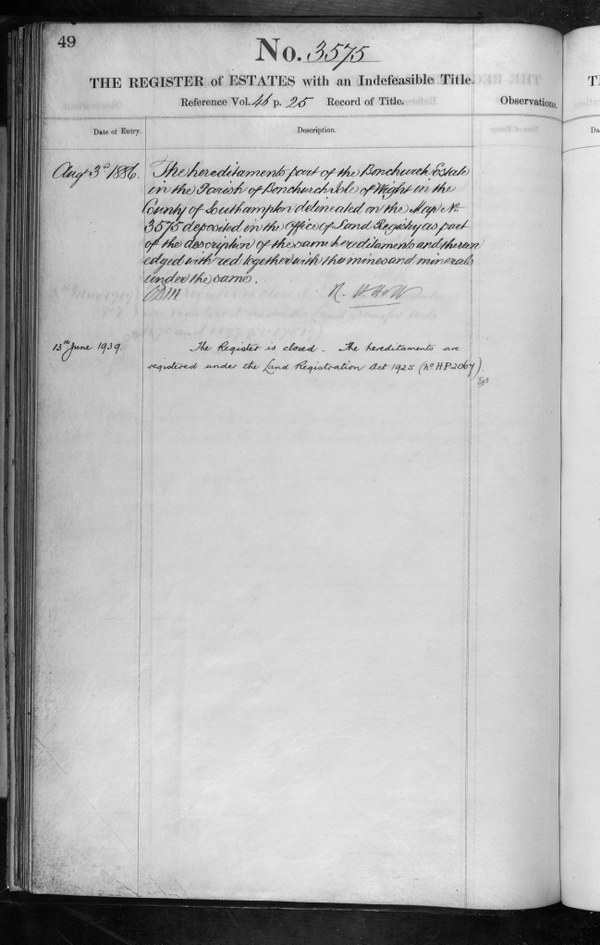 49
No. 3575
THE REGISTER of ESTATES with an Indefeasible Title.
Reference Vol. 46 p. 25 Record of Title.
Observations.
Date of Entry.
Description.
Aug 3d 1886.
The hereditaments part of the Bonchurch Estate
in the Parish of Bonchurch Isle of Wight in the
County of Southampton delineated on the Map No.
3575 deposited in the Office of Land Registry as part
of the description of the same hereditaments and thereon
edged with red together with the mines and minerals
under the same.
13th June 1939.
The Register is closed. The hereditaments are
registered under the Land Registration Act 1925 (No HP2067).